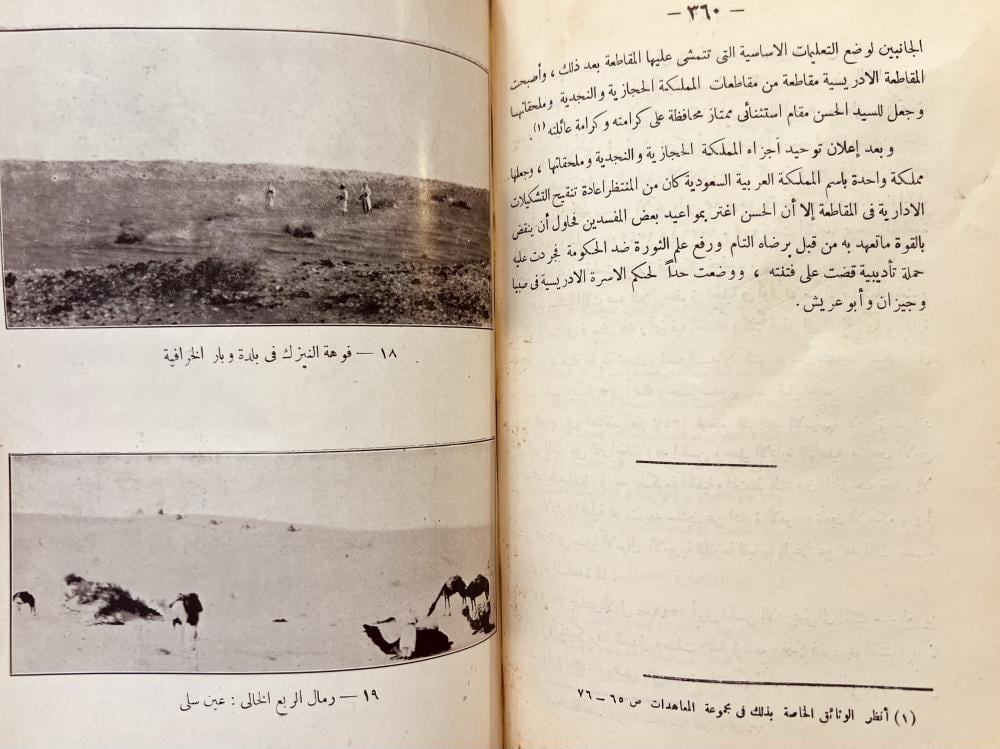 — ٣٦٠ —
الجانبين لوضع التعليمات الاساسية التى تتمشى عليها المقاطعة بعد ذلك ، وأصبحت
المقاطعة الادريسية مقاطعة من مقاطعات المملكة الحجازية والنجدية وملحقاتها
وجعل للسيد الحسن مقام استثنائى ممتاز محافظة على كرامته وكرامة عائلته (١).
وبعد إعلان توحيد أجزاء المملكة الحجازية والنجدية وملحقاتها ، وجعلها
مملكة واحدة باسم المملكة العربية السعودية كان من المنتظر اعادة تنقيح التشكيلات
الادارية فى المقاطعة إلا أن الحسن اغتر بمواعيد بعض المفسدين فحاول أن ينقض
بالقوة ماتعهد به من قبل برضاه التام ورفع علم الثورة ضد الحكومة فجردت عليه
حملة تأديبية قضت على فتنته ، ووضعت حداً لحكم الاسرة الادريسية فى صبيا
وجيزان وأبو عريش .
(١) أنظر الوثائق الخاصة بذلك فى مجموعة المعاهدات ص ٦٥ – ٧٦
١٨ — فوهة النيزك فى بلدة وبار الخرافية
١٩ — رمال الربع الخالى : عين سلى